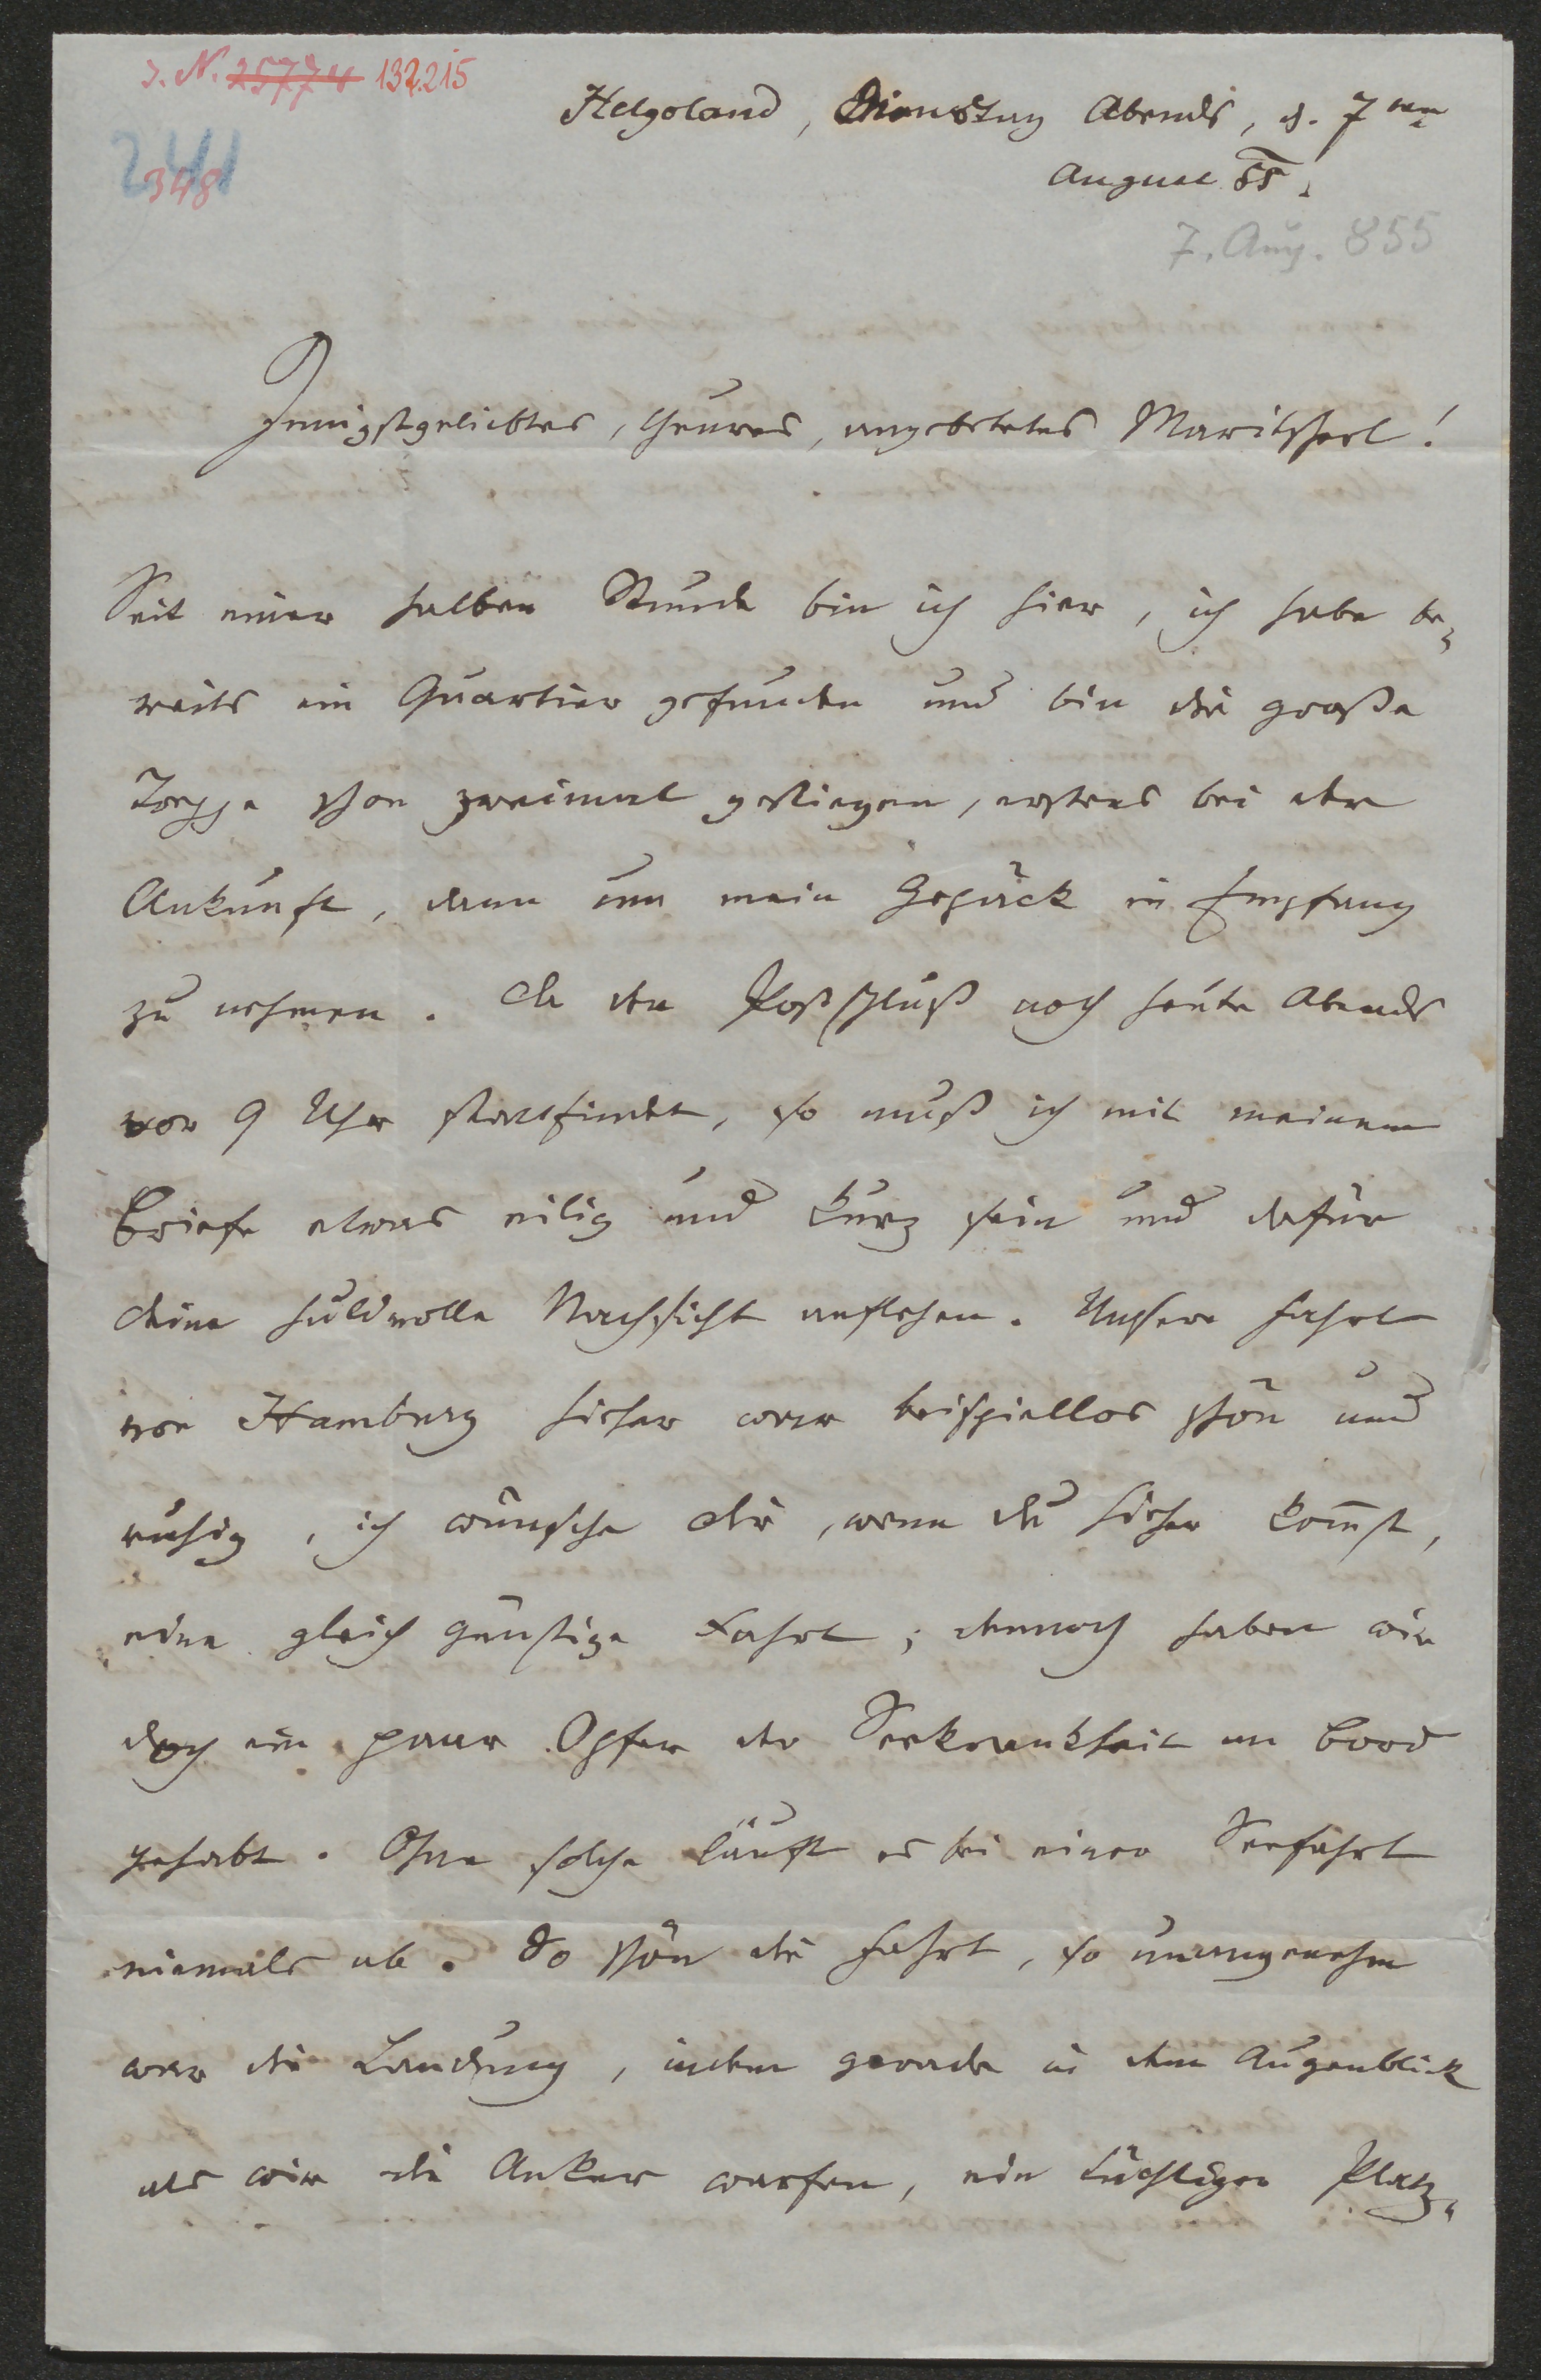 I. N. 25774 132.215
348
Helgoland, Dienstag Abends, d. 7ten
August 55.
7. Aug. 855
Innigstgeliebtes, theures, angebetetes Maritscherl!
Seit einer halben Stunde bin ich hier, ich habe be=
reits ein Quartier gefunden und bin die große
Treppe schon zweimal gestiegen, erstens bei der
Ankunft, dann um mein Gepäck in Empfang
zu nehmen. Da der Postschluß noch heute Abends
vor 9 Uhr stattfindet, so muß ich mit meinem
Briefe etwas eilig und kurz sein und dafür
deine huldvolle Nachsicht anflehen. Unsere Fahrt
von Hamburg hieher war beispiellos schön und
ruhig, ich wünsche dir, wenn du hieher kom̄st,
eine gleich günstige Fahrt; dennoch haben wir
doch ein paar Opfer der Seekrankheit an Bord
gehabt. Ohne solche läuft es bei einer Seefahrt
niemals ab. So schön die Fahrt, so unangenehm
war die Landung, indem gerade in dem Augenblick
als wir die Anker warfen, ein tüchtiger Platz=